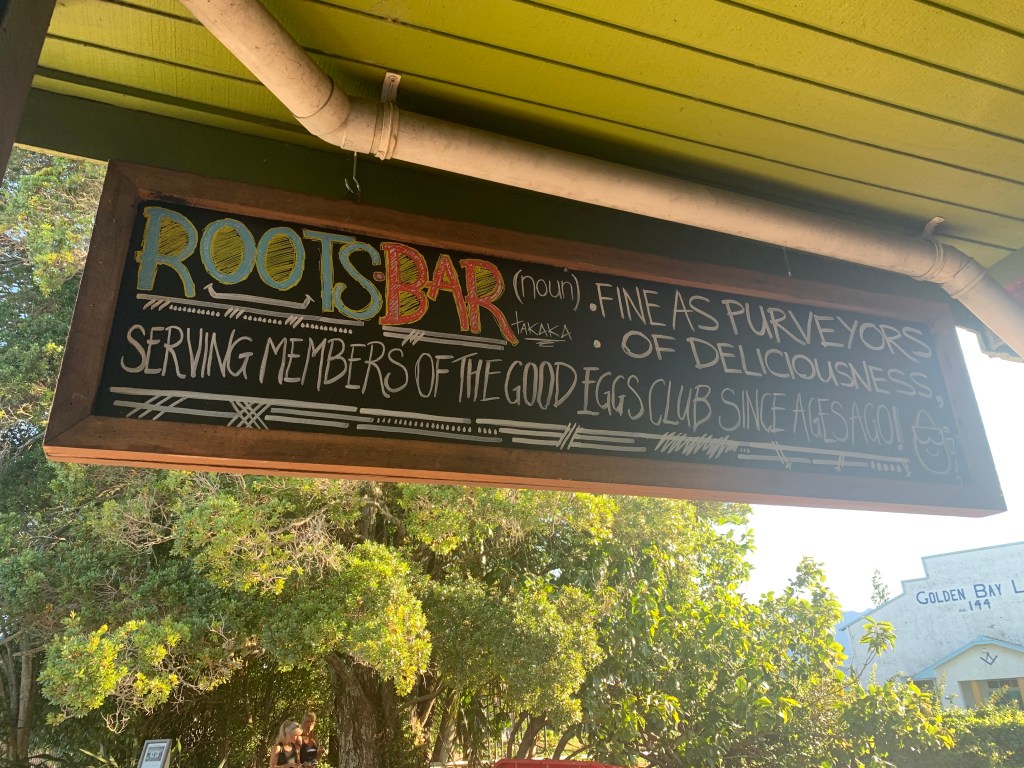 ROOTS·BAR (noun) .FINE AS PURVEYORS
TAKAKA . OF DELICIOUSNESS,
SERVING MEMBERS OF THE GOOD EGGS CLUB SINCE AGES AGO!
GOLDEN BAY L
144